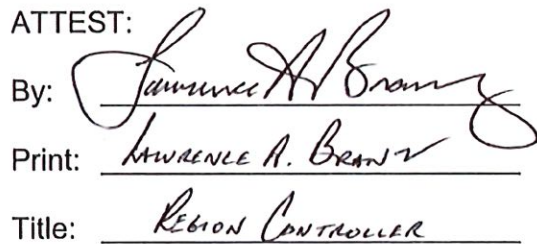 ATTEST:
By: Lawrence A. Brantz
Print: LAWRENCE A. BRANTZ
Title: REGION CONTROLLER